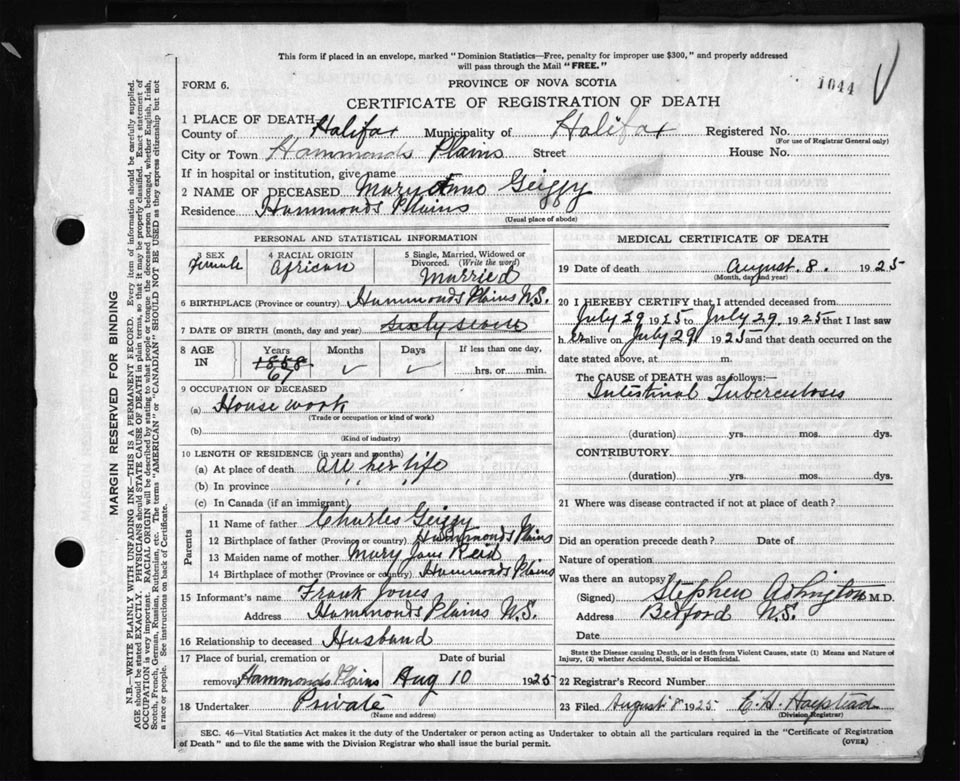 This form if placed in an envelope, marked "Dominion Statistics—Free, penalty for improper use $300," and properly addressed
will pass through the Mail "FREE."
1044
FORM 6.
PROVINCE OF NOVA SCOTIA
CERTIFICATE OF REGISTRATION OF DEATH
1 PLACE OF DEATH
County of Halifax Municipality of Halifax Registered No.
(For use of Registrar General only)
City or Town Hammonds Plains Street House No.
If in hospital or institution, give name
2 NAME OF DECEASED Mary Geiggy
Residence Hammonds Plains
(Usual place of abode)
PERSONAL AND STATISTICAL INFORMATION
3 SEX Female
4 RACIAL ORIGIN African
5 Single, Married, Widowed or Divorced. (Write the word) Married
6 BIRTHPLACE (Province or country) Hammonds Plains N.S.
7 DATE OF BIRTH (month, day and year) Sixty seven
8 AGE IN
Years Months Days If less than one day,
1858
67 ✓ ✓ hrs. or min.
9 OCCUPATION OF DECEASED
(a) House work
(Trade or occupation or kind of work)
(b)
(Kind of industry)
10 LENGTH OF RESIDENCE (in years and months)
(a) At place of death All her life
(b) In province " "
(c) In Canada (if an immigrant)
Parents
11 Name of father Charles Geiggy
12 Birthplace of father (Province or country) Hammonds Plains
13 Maiden name of mother Mary Jane Reid
14 Birthplace of mother (Province or country) Hammonds Plains
15 Informant's name Frank Jones
Address Hammonds Plains N.S.
16 Relationship to deceased Husband
17 Place of burial, cremation or Date of burial
removal Hammonds Plains Aug 10 1925
18 Undertaker Private
(Name and address)
MEDICAL CERTIFICATE OF DEATH
19 Date of death August. 8. 1925
(Month, day and year)
20 I HEREBY CERTIFY that I attended deceased from
July 29 1925 to July 29. 1925 that I last saw
h er alive on July 29 1925 and that death occurred on the
date stated above, at m.
The CAUSE OF DEATH was as follows:—
Intestinal Tuberculosis
(duration) yrs. mos. dys.
CONTRIBUTORY
(duration) yrs. mos. dys.
21 Where was disease contracted if not at place of death?
Did an operation precede death? Date of
Nature of operation
Was there an autopsy?
(Signed) Stephen M.D.
Address Bedford N.S.
Date
State the Disease causing Death, or in death from Violent Causes, state (1) Means and Nature of
Injury, (2) whether Accidental, Suicidal or Homicidal.
22 Registrar's Record Number
23 Filed August 8 1925 E. H.
(Division Registrar)
SEC. 46—Vital Statistics Act makes it the duty of the Undertaker or person acting as Undertaker to obtain all the particulars required in the "Certificate of Registration
of Death" and to file the same with the Division Registrar who shall issue the burial permit.
(OVER)
MARGIN RESERVED FOR BINDING
N.B.—WRITE PLAINLY WITH UNFADING INK—THIS IS A PERMANENT RECORD. Every item of information should be carefully supplied.
AGE should be stated EXACTLY. PHYSICIANS should STATE CAUSE OF DEATH in plain terms, so that it may be properly classified. Exact statement of
OCCUPATION is very important. RACIAL ORIGIN will be described by stating to what people or tongue the deceased person belonged, whether English, Irish,
Scotch, French, German, Russian, Ruthenian, etc. The terms "AMERICAN" or "CANADIAN" SHOULD NOT BE USED as they express citizenship but not
a race or people. See instructions on back of Certificate.